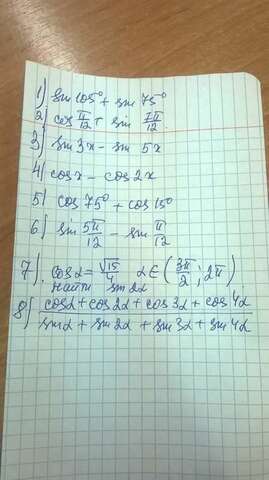 1) sin 105° + sin 75°
2) cos π/12 + sin 7π/12
3) sin 3x - sin 5x
4) cosx - cos2x
5) cos 75° + cos 15°
6) sin 5π/12 - sin π/12
7) cosα = √15/4 α∈(3π/2; 2π)
найти sin 2α
8) (cosα + cos2α + cos3α + cos4α)/(sinα + sin2α + sin3α + sin4α)